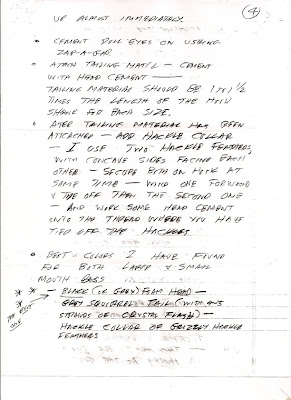 4
UP ALMOST IMMEDIATELY.
• CEMENT DOLL EYES ON USING
ZAP-A-GAP.
• ATTACH TAILING MAT'L - CEMENT
WITH HEAD CEMENT —
TAILING MATERIAL SHOULD BE 1 TO 1 1/2
TIMES THE LENGTH OF THE HOOK
SHANK FOR EACH SIZE.
• AFTER TAILING MATERIAL HAS BEEN
ATTACHED - ADD HACKLE COLLAR
- I USE TWO HACKLE FEATHERS
WITH CONCAVE SIDES FACING EACH
OTHER - SECURE BOTH ON HOOK AT
SAME TIME - WIND ONE FORWARD
& TYE OFF THEN THE SECOND ONE
- AND WORK SOME HEAD CEMENT
ONTO THE THREAD WHERE YOU HAVE
TIED OFF THE HACKLES.
• BEST COLORS I HAVE FOUND
FOR BOTH LARGE & SMALL
MOUTH BASS
* * - BLACK (OR GREY) FOAM HEAD -
GREY SQUIRREL TAIL (WITH
STRANDS OF CRYSTAL FLASH) -
HACKLE COLLAR OF GRIZZLY HACKLE
FEATHERS